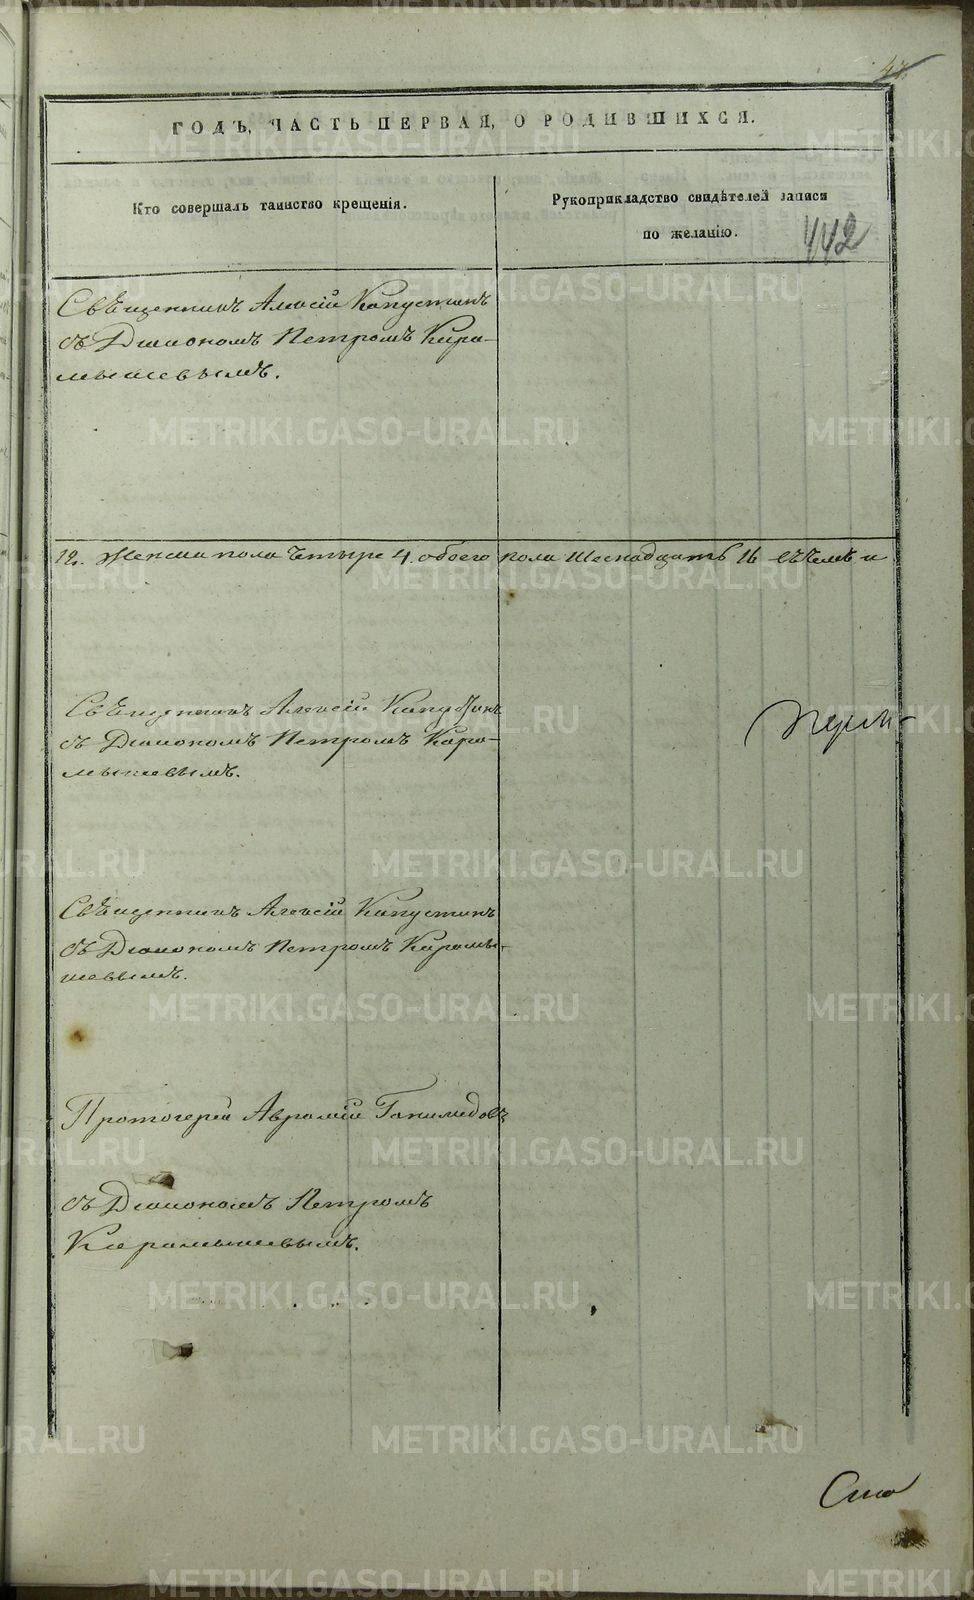 47.
ГОДЪ, ЧАСТЬ ПЕРВАЯ, О РОДИВШИХСЯ.
Кто совершалъ таинство крещенія.
Рукоприкладство свидѣтелей записи
по желанію.
442
Священникъ Алексій Капустинъ
съ Діакономъ Петромъ Кара-
мышевымъ.
12. Женска пола четыре 4. обоего пола шеснадцать 16
Священникъ Алексій Капустинъ
съ Діакономъ Петромъ Кара-
мышевымъ.
Священникъ Алексій Капустинъ
съ Діакономъ Петромъ Карамы-
шевымъ.
Протоіерей Аврамій
съ Діакономъ Петромъ
Карамышевымъ.
METRIKI.GASO-URAL.RU